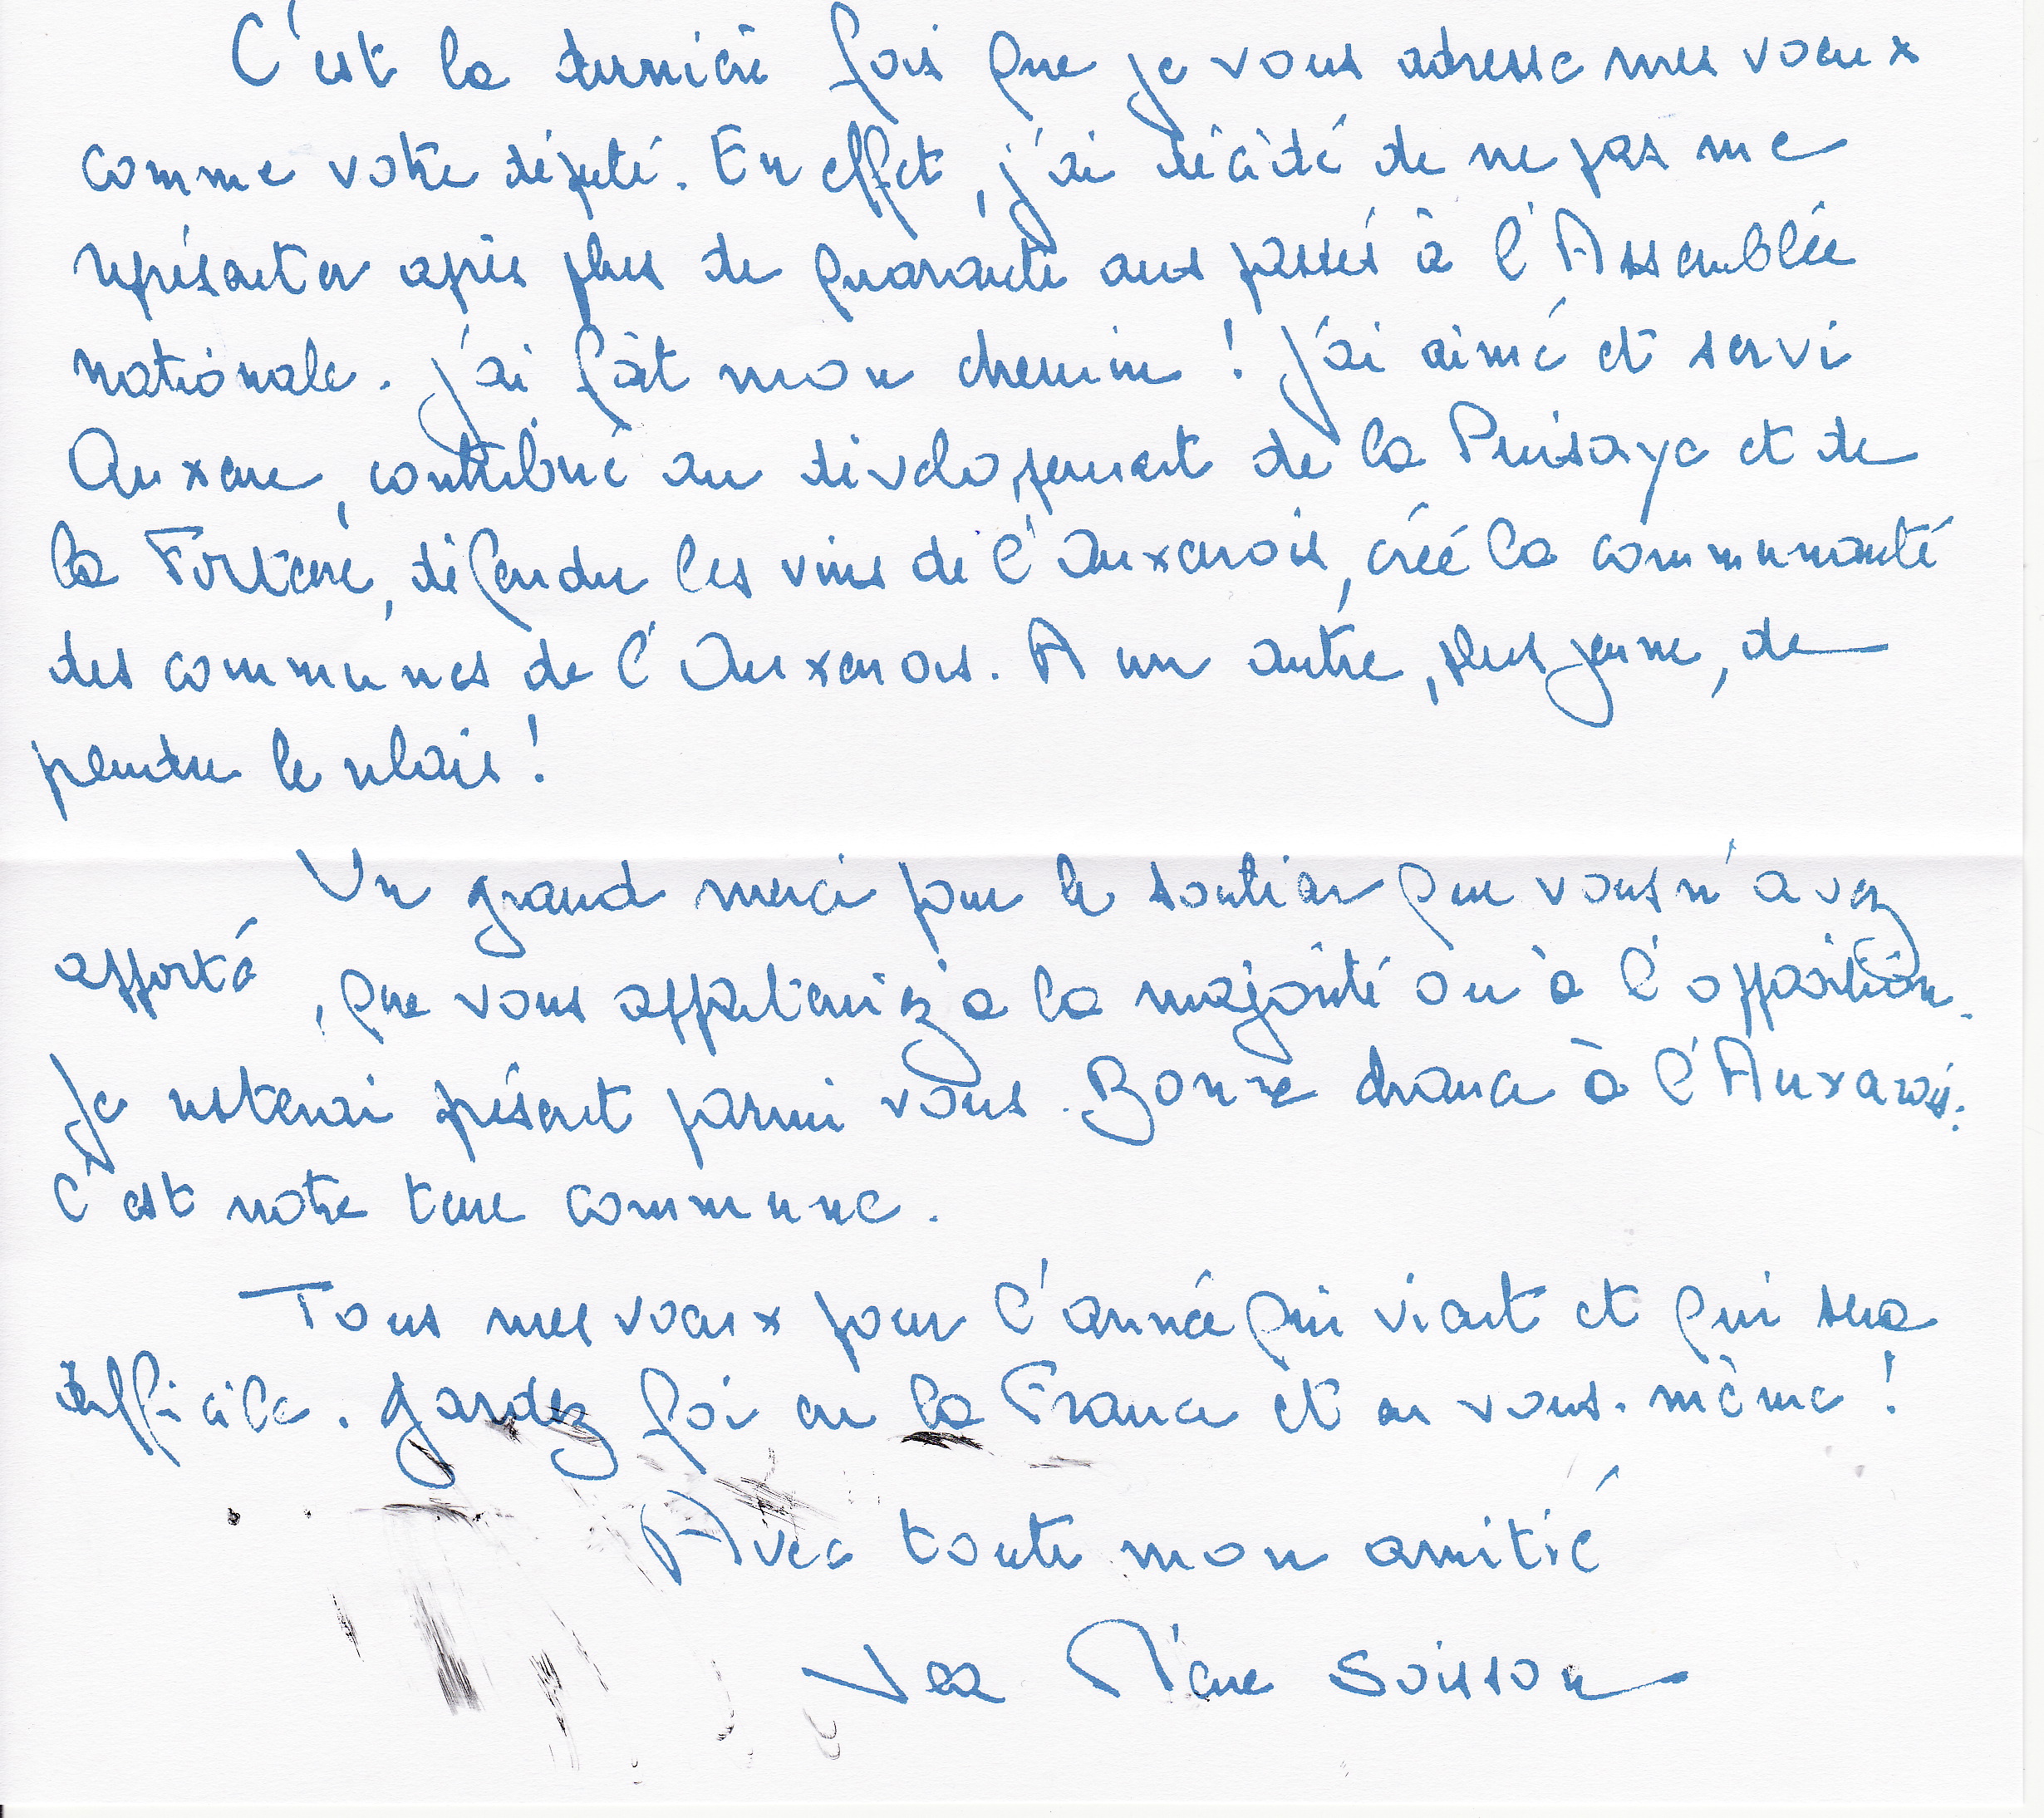 C'est la dernière fois que je vous adresse mes voeux
comme votre député. En effet, j'ai décidé de ne pas me
représenter après plus de quarante ans passés à l'Assemblée
nationale. J'ai fait mon chemin ! J'ai aimé et servi
Auxerre, contribué au développement de la Puisaye et de
la Forterre, défendu les vins de l'Auxerrois, créé la communauté
des communes de l'Auxerrois. A un autre, plus jeune, de
prendre le relais !
Un grand merci pour le soutien que vous m'avez
apporté, que vous apparteniez à la majorité ou à l'opposition.
Je resterai présent parmi vous. Bonne chance à l'Auxerrois :
c'est notre terre commune.
Tous mes voeux pour l'année qui vient et qui sera
difficile. Gardez foi en la France et en vous-même !
Avec toute mon amitié
Jean Pierre Soisson